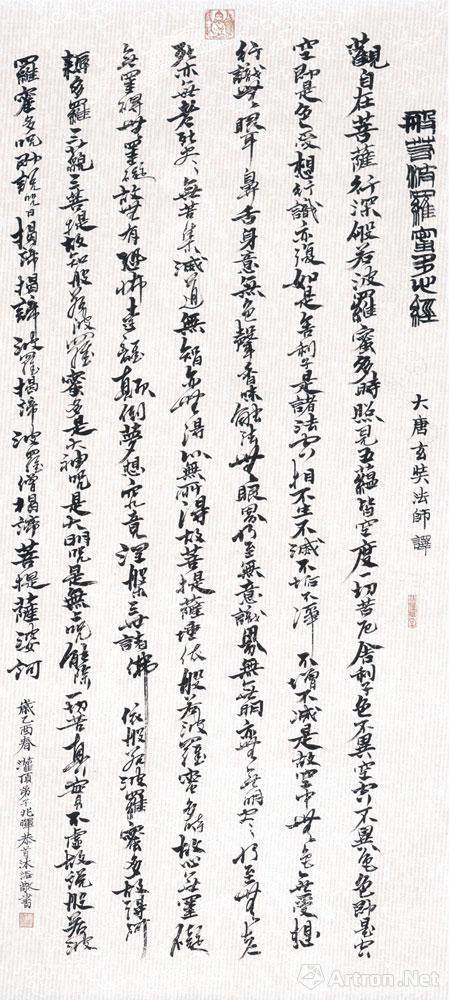 般若波羅蜜多心經
大唐玄奘法師譯
觀自在菩薩行深般若波羅蜜多時照見五蘊皆空度一切苦厄舍利子色不異空空不異色色即是空
空即是色受想行識亦復如是舍利子是諸法空相不生不滅不垢不淨不增不減是故空中無色無受想
行識無眼耳鼻舌身意無色聲香味觸法無眼界乃至無意識界無無明亦無無明盡乃至無老
死亦無老死盡無苦集滅道無智亦無得以無所得故菩提薩埵依般若波羅蜜多時故心無罣礙
無罣礙無罣礙故無有恐怖遠離顛倒夢想究竟涅槃三世諸佛依般若波羅蜜多故得阿
耨多羅三藐三菩提故知般若波羅蜜多是大神咒是大明咒是無上咒能除一切苦真實不虛故說般若波
羅蜜多咒即說咒曰揭諦揭諦波羅揭諦波羅僧揭諦菩提薩婆訶
歲乙酉春灌頂弟子兆暉恭首沐浴敬書
Artron.Net